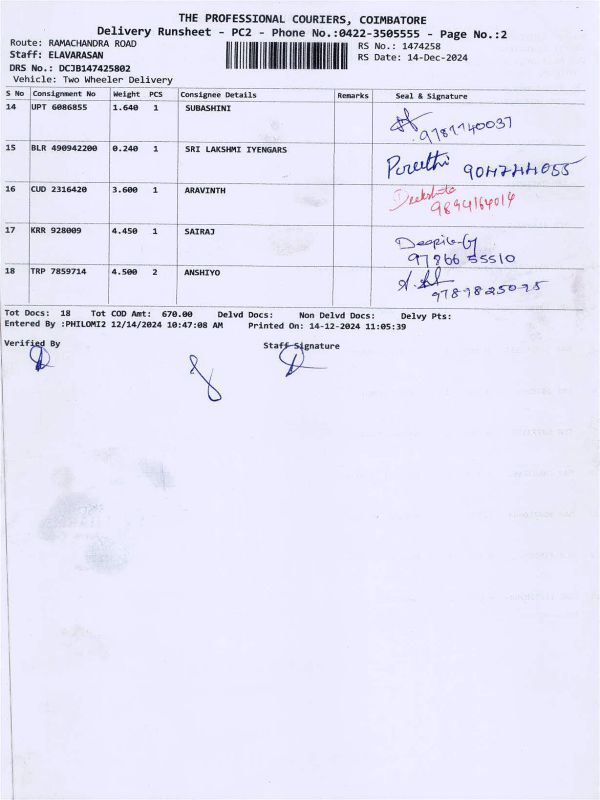 THE PROFESSIONAL COURIERS, COIMBATORE
Delivery Runsheet - PC2 - Phone No.:0422-3505555 - Page No.:2
Route: RAMACHANDRA ROAD
RS No.: 1474258
Staff: ELAVARASAN
RS Date: 14-Dec-2024
DRS No.: DCJB147425802
Vehicle: Two Wheeler Delivery
S No Consignment No Weight PCS Consignee Details Remarks Seal & Signature
14 UPT 6086855 1.640 1 SUBASHINI
9787740037
15 BLR 490942200 0.240 1 SRI LAKSHMI IYENGARS Preethi 9047244055
16 CUD 2316420 3.600 1 ARAVINTH
9894164014
17 KRR 928009 4.450 1 SAIRAJ
97866 55510
18 TRP 7859714 4.500 2 ANSHIYO
9789825095
Tot Docs: 18 Tot COD Amt: 670.00 Delvd Docs: Non Delvd Docs: Delvy Pts:
Entered By :PHILOMI2 12/14/2024 10:47:08 AM Printed On: 14-12-2024 11:05:39
Verified By Staff Signature